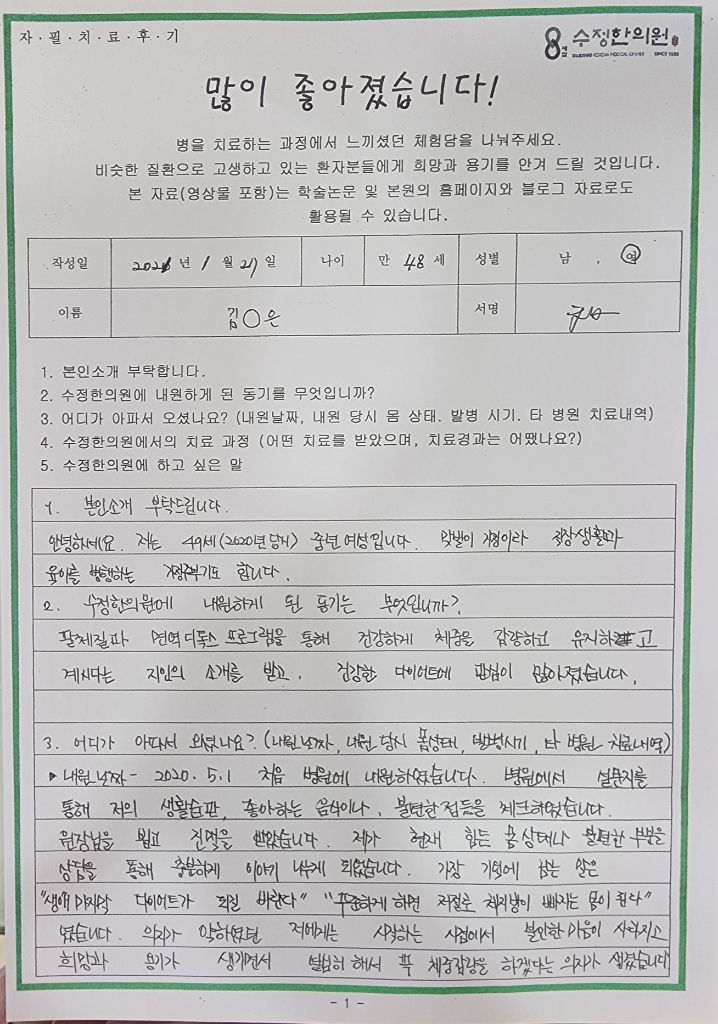 자·필·치·료·후·기
8체질 수정한의원
SUJEONG KOREAN MEDICAL CENTER SINCE 1995
많이 좋아졌습니다!
병을 치료하는 과정에서 느끼셨던 체험담을 나눠주세요.
비슷한 질환으로 고생하고 있는 환자분들에게 희망과 용기를 안겨 드릴 것입니다.
본 자료(영상물 포함)는 학술논문 및 본원의 홈페이지와 블로그 자료로도
활용될 수 있습니다.
작성일 2021 년 1 월 27 일 나이 만 48 세 성별 남 , 여
이름 김○은 서명
1. 본인소개 부탁합니다.
2. 수정한의원에 내원하게 된 동기를 무엇입니까?
3. 어디가 아파서 오셨나요? (내원날짜, 내원 당시 몸 상태. 발병 시기. 타 병원 치료내역)
4. 수정한의원에서의 치료 과정 (어떤 치료를 받았으며, 치료경과는 어땠나요?)
5. 수정한의원에 하고 싶은 말
1. 본인소개 부탁드립니다.
안녕하세요. 저는 49세(2020년 당시) 중년 여성입니다. 맞벌이 가정이라 직장생활과
육아를 병행하는 가정주부기도 합니다.
2. 수정한의원에 내원하게 된 동기는 무엇입니까?
팔체질과 면역 디톡스 프로그램을 통해 건강하게 체중을 감량하고 유지하고
계시다는 지인의 소개를 받고, 건강한 다이어트에 관심이 많아졌습니다.
3. 어디가 아파서 오셨나요? (내원날짜, 내원 당시 몸상태, 발병시기, 타 병원 치료내역)
▸내원날짜 - 2020. 5. 1 처음 병원에 내원하였습니다. 병원에서 설문지를
통해 저의 생활습관, 좋아하는 음식이나, 불편한 점등을 체크하였습니다.
원장님을 뵙고 진맥을 받았습니다. 제가 현재 힘든 몸 상태나 불편한 부분을
상담을 통해 충분하게 이야기 나누게 되었습니다. 가장 기억에 남는 말은
"생애 마지막 다이어트가 되길 바란다" "꾸준하게 하면 저절로 체지방이 빠지는 몸이 된다"
였습니다. 의지가 약하였던 저에게는 시작하는 시점에서 불안한 마음이 사라지고
희망과 용기가 생기면서 열심히 해서 꼭 체중감량을 하겠다는 의지가 생겼습니다
- 1 -